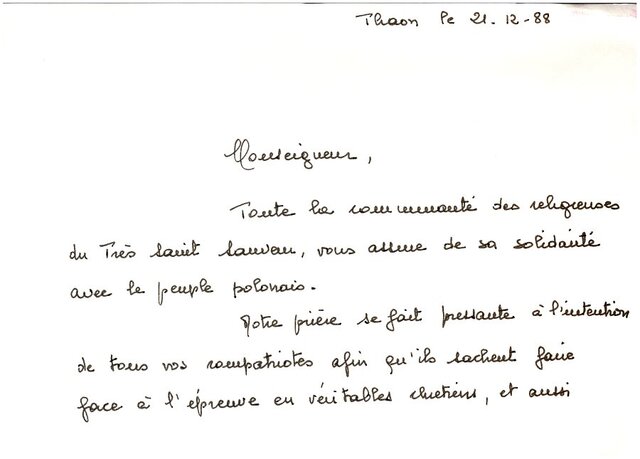 Thaon le 21.12-88
Monseigneur,
Toute la communauté des religieuses
du Très Saint Sauveur, vous assure de sa solidarité
avec le peuple polonais.
Notre prière se fait pressante à l'intention
de tous vos compatriotes afin qu'ils sachent faire
face à l'épreuve en véritables chrétiens, et aussi